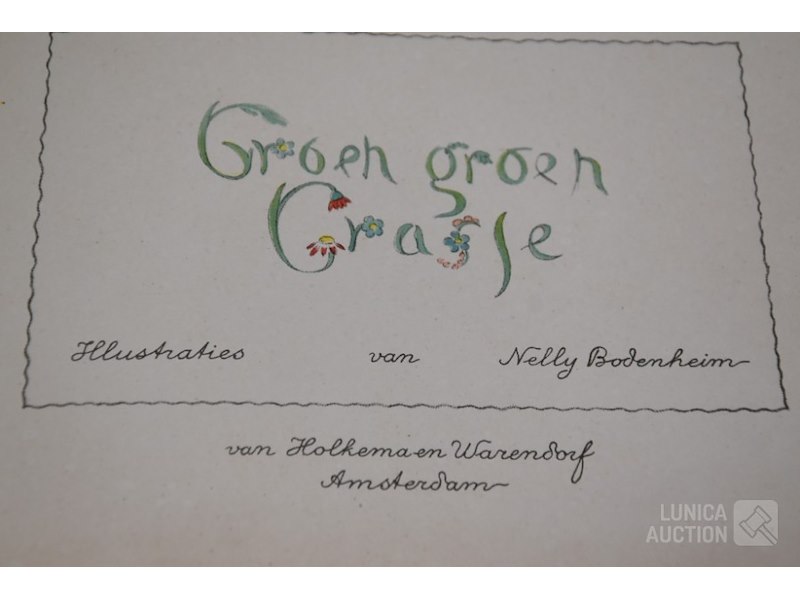 Groen groen
Grasje
Illustraties van Nelly Bodenheim
van Holkema en Warendorf
Amsterdam
LUNICA
AUCTION